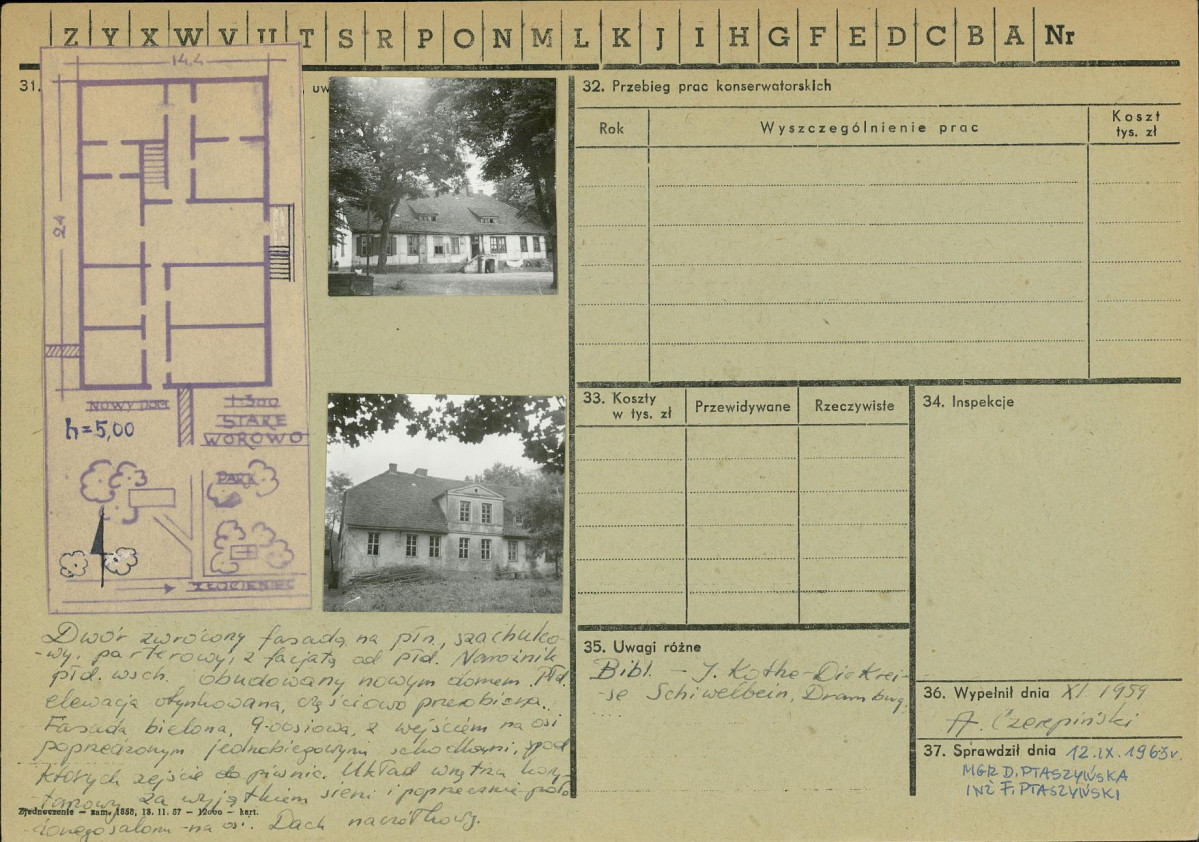 Z Y X W V U T S R P O N M L K J I H G F E D C B A Nr
31.
uw
14.4
24
NOWY DOM
1:300
STARE
WOROWO
h=5,00
PARK
ZŁOCIENIEC
Dwór zwrócony fasadą na płn, szachulco-
-wy, parterowy, z facjatą od płd. Narożnik
płd. wsch. obudowany nowym domem. Płd.
elewacja otynkowana, częściowo przerobiona.
Fasada bielona, 9-osiowa, z wejściem na osi
poprzedzonym jednobiegowymi schodkami, spod
których zejście do piwnic. Układ wnętrz kory-
tarzowy za wyjątkiem sieni i poprzecznie poło-
Zjednoczenie — zam. 1858, 18. 11. 57 — 12000 — kart.
żonego salonu na osi. Dach naczółkowy.
32. Przebieg prac konserwatorskich
Rok
Wyszczególnienie prac
Koszt
tys. zł
33. Koszty
w tys. zł
Przewidywane
Rzeczywiste
34. Inspekcje
35. Uwagi różne
Bibl. — J. Kothe-Die Krei-
-se Schiwelbein, Dramburg
36. Wypełnił dnia XI. 1959
A. Czerepiński
37. Sprawdził dnia 12.IX.1963r.
MGR D. PTASZYŃSKA
INŻ F. PTASZYŃSKI